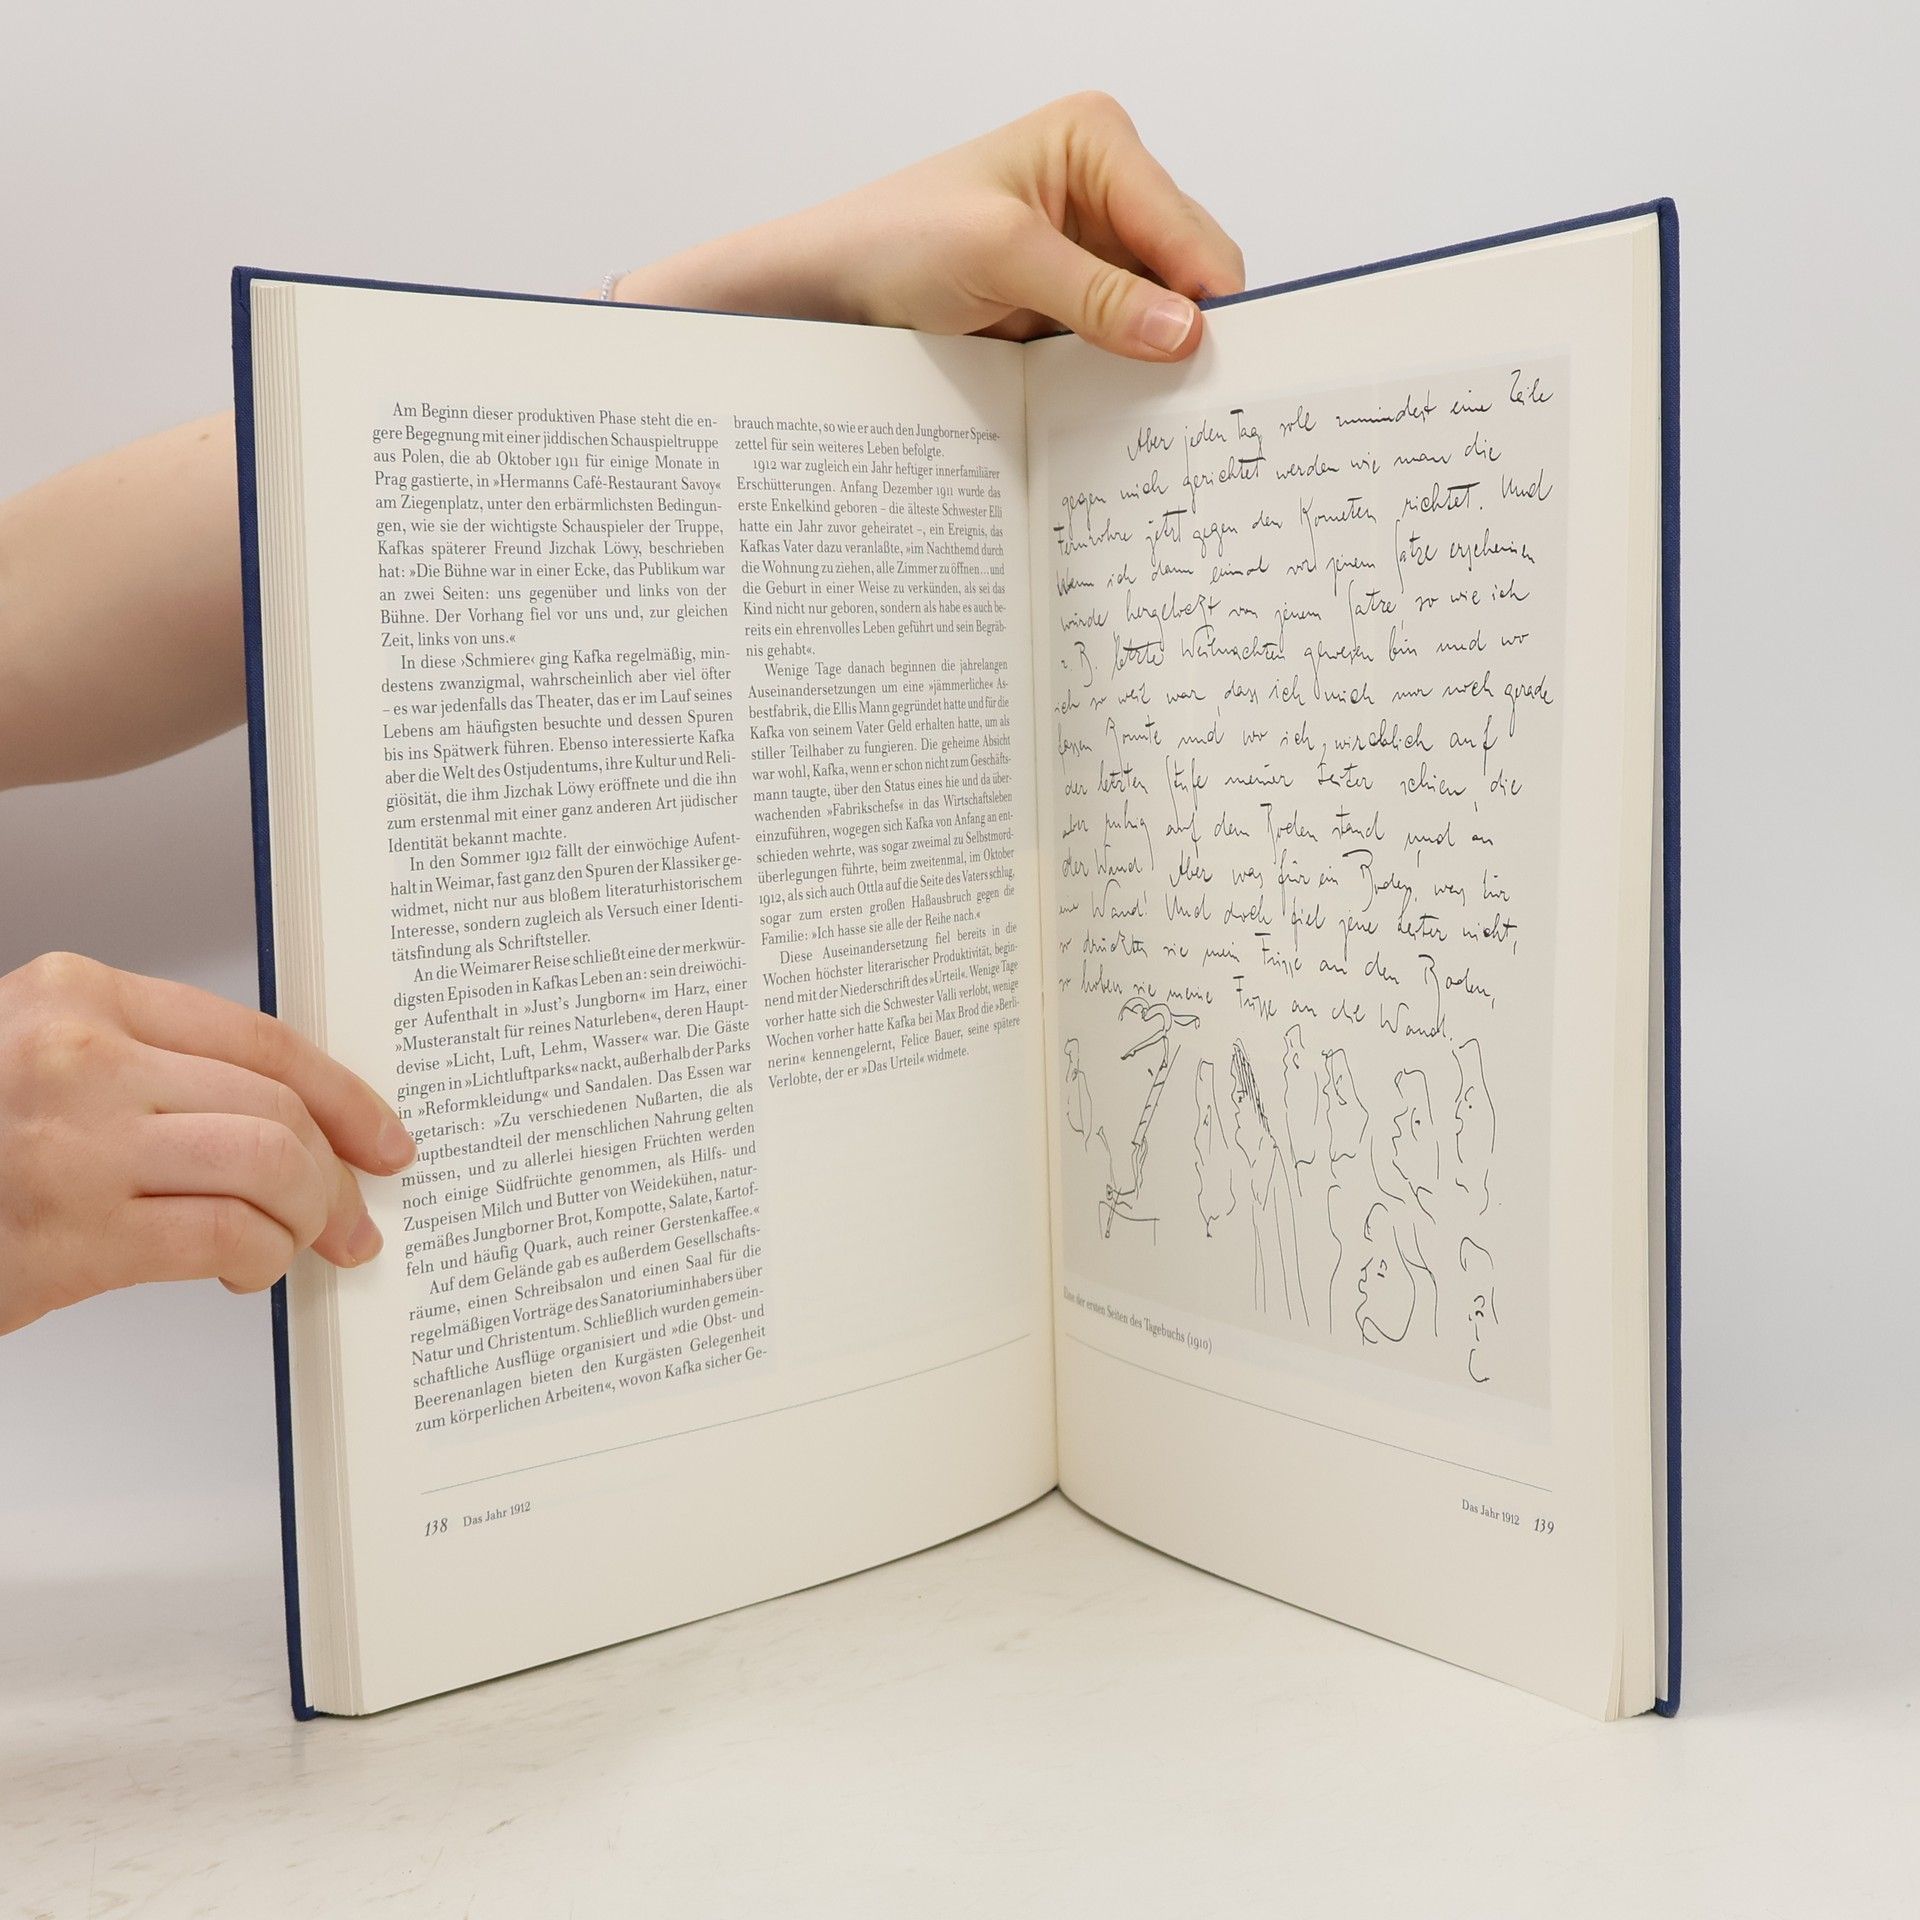 Am Beginn dieser produktiven Phase steht die en-
gere Begegnung mit einer jiddischen Schauspieltruppe
aus Polen, die ab Oktober 1911 für einige Monate in
Prag gastierte, in »Hermanns Café-Restaurant Savoy«
am Ziegenplatz, unter den erbärmlichsten Bedingun-
gen, wie sie der wichtigste Schauspieler der Truppe,
Kafkas späterer Freund Jizchak Löwy, beschrieben
hat: »Die Bühne war in einer Ecke, das Publikum war
an zwei Seiten: uns gegenüber und links von der
Bühne. Der Vorhang fiel vor uns und, zur gleichen
Zeit, links von uns.«
In diese ›Schmiere‹ ging Kafka regelmäßig, min-
destens zwanzigmal, wahrscheinlich aber viel öfter
– es war jedenfalls das Theater, das er im Lauf seines
Lebens am häufigsten besuchte und dessen Spuren
bis ins Spätwerk führen. Ebenso interessierte Kafka
aber die Welt des Ostjudentums, ihre Kultur und Reli-
giösität, die ihm Jizchak Löwy eröffnete und die ihn
zum erstenmal mit einer ganz anderen Art jüdischer
Identität bekannt machte.
In den Sommer 1912 fällt der einwöchige Aufent-
halt in Weimar, fast ganz den Spuren der Klassiker ge-
widmet, nicht nur aus bloßem literaturhistorischem
Interesse, sondern zugleich als Versuch einer Identi-
tätsfindung als Schriftsteller.
An die Weimarer Reise schließt eine der merkwür-
digsten Episoden in Kafkas Leben an: sein dreiwöchi-
ger Aufenthalt in »Just's Jungborn« im Harz, einer
»Musteranstalt für reines Naturleben«, deren Haupt-
devise »Licht, Luft, Lehm, Wasser« war. Die Gäste
gingen in »Lichtluftparks« nackt, außerhalb der Parks
in »Reformkleidung« und Sandalen. Das Essen war
egetarisch: »Zu verschiedenen Nußarten, die als
auptbestandteil der menschlichen Nahrung gelten
müssen, und zu allerlei hiesigen Früchten werden
noch einige Südfrüchte genommen, als Hilfs- und
Zuspeisen Milch und Butter von Weidekühen, natur-
gemäßes Jungborner Brot, Kompotte, Salate, Kartof-
feln und häufig Quark, auch reiner Gerstenkaffee.«
Auf dem Gelände gab es außerdem Gesellschafts-
räume, einen Schreibsalon und einen Saal für die
regelmäßigen Vorträge des Sanatoriuminhabers über
Natur und Christentum. Schließlich wurden gemein-
schaftliche Ausflüge organisiert und »die Obst- und
Beerenanlagen bieten den Kurgästen Gelegenheit
zum körperlichen Arbeiten«, wovon Kafka sicher Ge-
brauch machte, so wie er auch den Jungborner Speise-
zettel für sein weiteres Leben befolgte.
1912 war zugleich ein Jahr heftiger innerfamiliärer
Erschütterungen. Anfang Dezember 1911 wurde das
erste Enkelkind geboren – die älteste Schwester Elli
hatte ein Jahr zuvor geheiratet –, ein Ereignis, das
Kafkas Vater dazu veranlaßte, »im Nachthemd durch
die Wohnung zu ziehen, alle Zimmer zu öffnen...und
die Geburt in einer Weise zu verkünden, als sei das
Kind nicht nur geboren, sondern als habe es auch be-
reits ein ehrenvolles Leben geführt und sein Begräb-
nis gehabt«.
Wenige Tage danach beginnen die jahrelangen
Auseinandersetzungen um eine »jämmerliche« As-
bestfabrik, die Ellis Mann gegründet hatte und für die
Kafka von seinem Vater Geld erhalten hatte, um als
stiller Teilhaber zu fungieren. Die geheime Absicht
war wohl, Kafka, wenn er schon nicht zum Geschäfts-
mann taugte, über den Status eines hie und da über-
wachenden »Fabrikschefs« in das Wirtschaftsleben
einzuführen, wogegen sich Kafka von Anfang an ent-
schieden wehrte, was sogar zweimal zu Selbstmord-
überlegungen führte, beim zweitenmal, im Oktober
1912, als sich auch Ottla auf die Seite des Vaters schlug,
sogar zum ersten großen Haßausbruch gegen die
Familie: »Ich hasse sie alle der Reihe nach.«
Diese Auseinandersetzung fiel bereits in die
Wochen höchster literarischer Produktivität, begin-
nend mit der Niederschrift des »Urteil«. Wenige Tage
vorher hatte sich die Schwester Valli verlobt, wenige
Wochen vorher hatte Kafka bei Max Brod die »Berli-
nerin« kennengelernt, Felice Bauer, seine spätere
Verlobte, der er »Das Urteil« widmete.
138 Das Jahr 1912
Aber jeden Tag soll zumindest eine Zeile
gegen mich gerichtet werden wie man die
Fernrohre jetzt gegen den Kometen richtet. Und
wenn ich dann einmal vor jenem Satze erscheinen
würde hergelockt von jenem Satze, so wie ich
z. B. letzte Weihnachten gewesen bin und wo
ich so weit war, dass ich mich nur noch gerade
fassen konnte und wo ich wircklich auf
der letzten Stufe meiner Leiter schien, die
aber ruhig auf dem Boden stand und an
der Wand. Aber was für ein Boden, was für
eine Wand! Und doch fiel jene Leiter nicht,
so drückten sie meine Füsse an den Boden,
so hoben sie meine Füsse an die Wand.
Eine der ersten Seiten des Tagebuchs (1910)
Das Jahr 1912 139